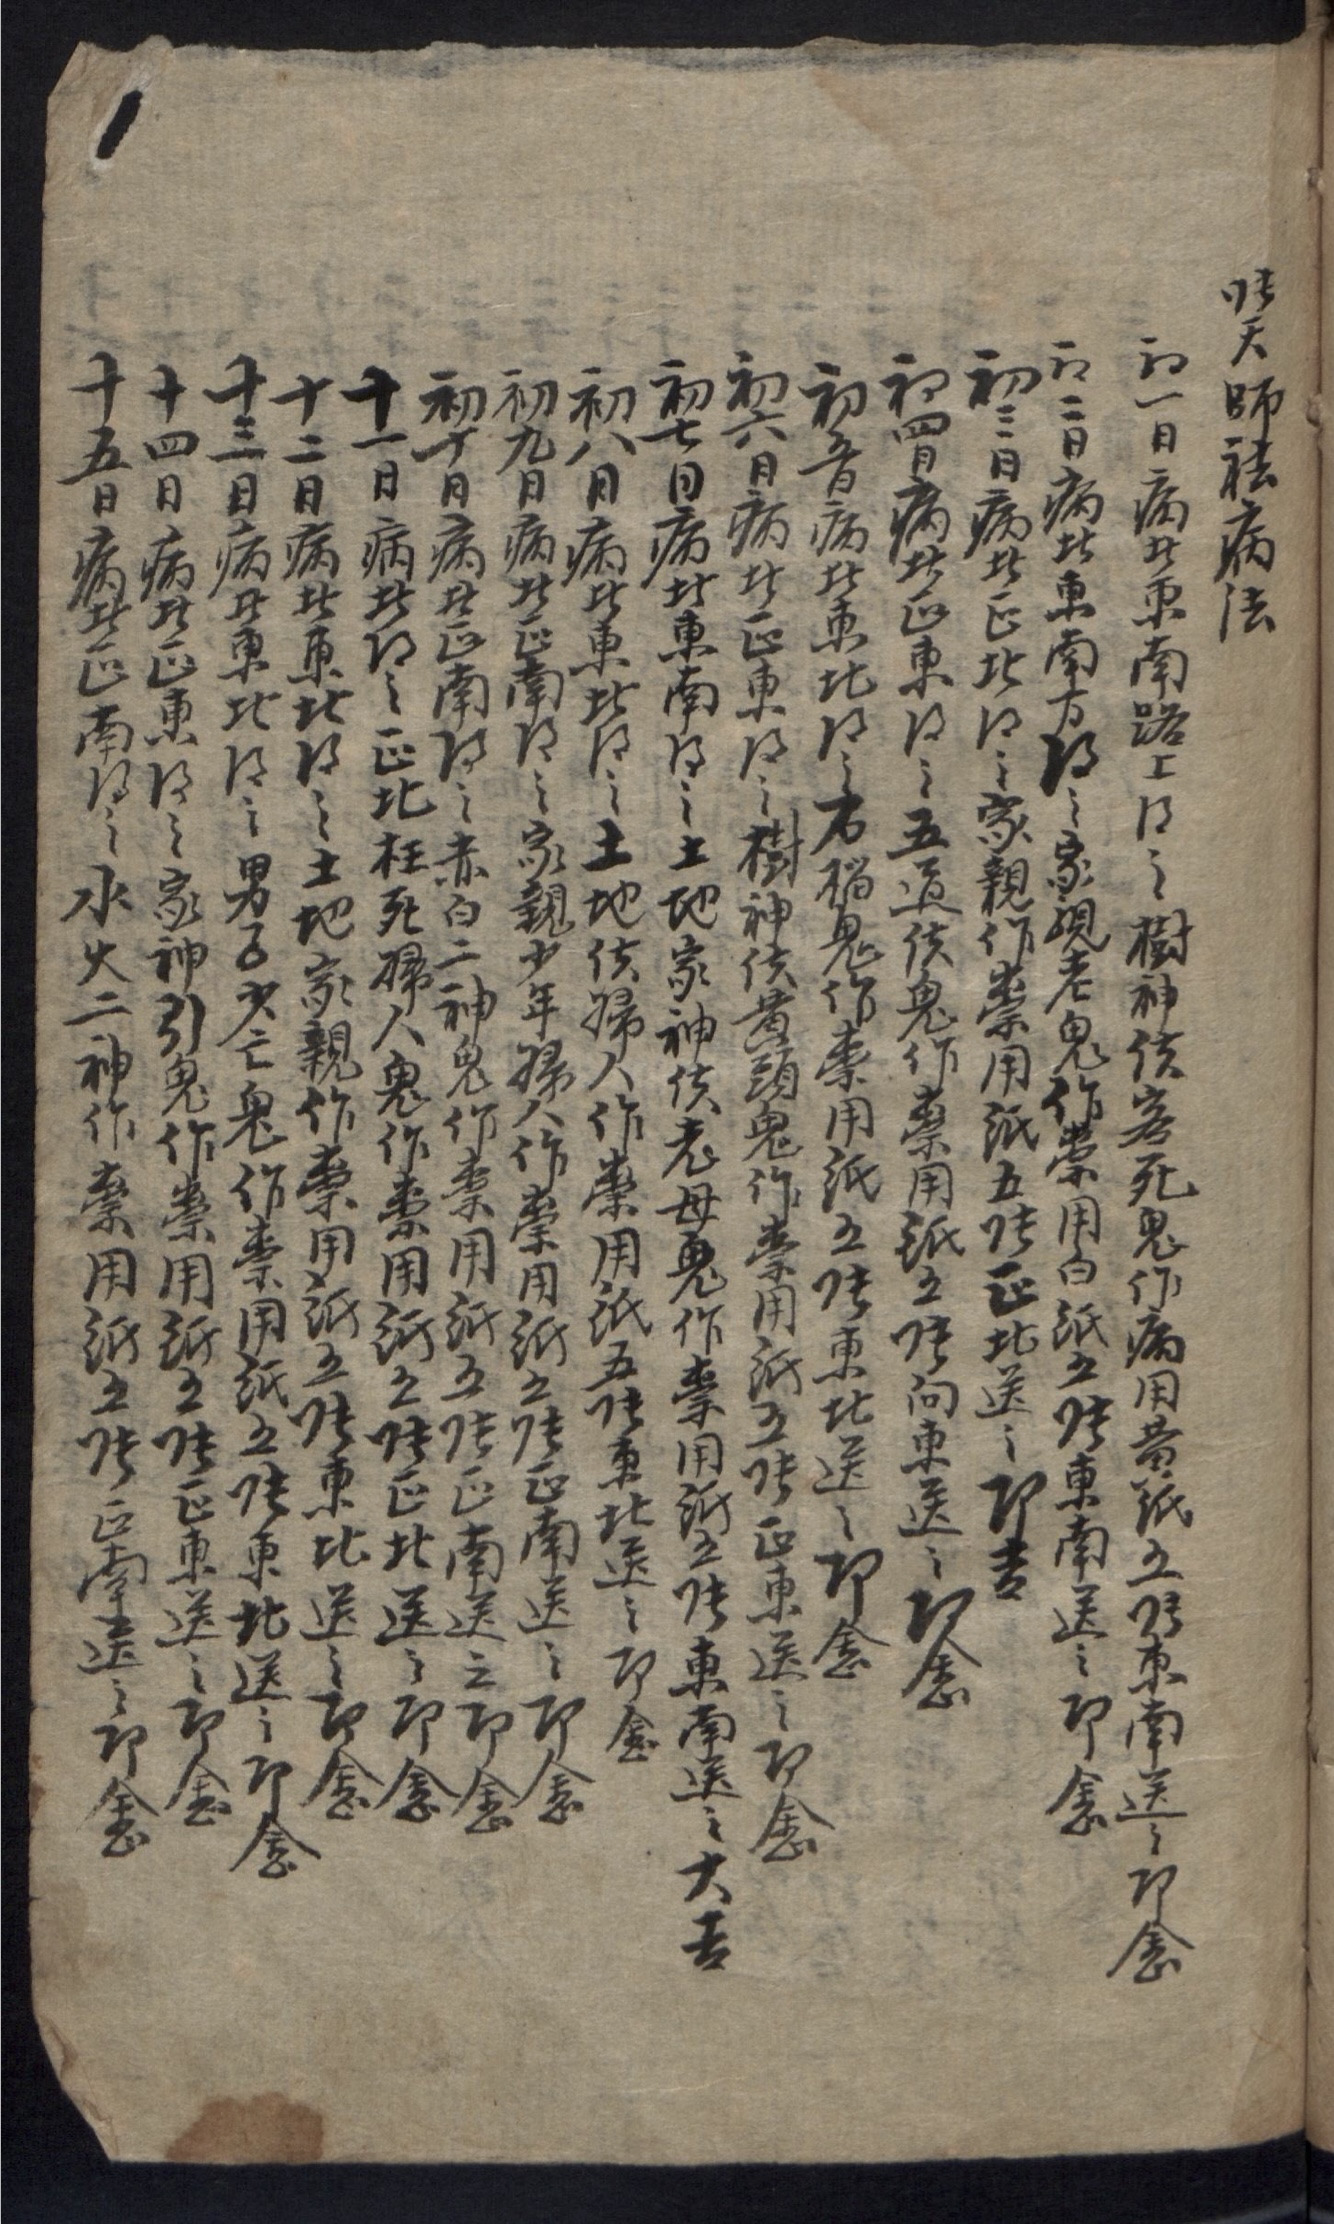 張天師祛病法
初一日病者東南路上得之樹神使客死鬼作病用黄紙五張東南送之即念
初二日病者東南方得之家親老鬼作祟用白紙五張東南送之即念
初三日病者正北得之家親作祟用紙五張正北送之即吉
初四日病者正東得之五道使鬼作祟用紙五張向東送之即念
初五日病者東北得之鬼作祟用紙五張東北送之即念
初六日病者正東得之樹神使黄頭鬼作祟用紙五張正東送之即念
初七日病者東南得之土地家神使老母鬼作祟用紙五張東南送之大吉
初八日病者東北得之土地使婦人作祟用紙五張東北送之即念
初九日病者正南得之家親少年婦人作祟用紙五張正南送之即念
初十日病者正南得之赤白二神鬼作祟用紙五張正南送之即念
十一日病者得之正北枉死婦人鬼作祟用紙五張正北送之即念
十二日病者東北得之土地家親作祟用紙五張東北送之即念
十三日病者東北得之男子少亡鬼作祟用紙五張東北送之即念
十四日病者正東得之家神引鬼作祟用紙五張正東送之即念
十五日病者正南得之水火二神作祟用紙五張正南送之即念